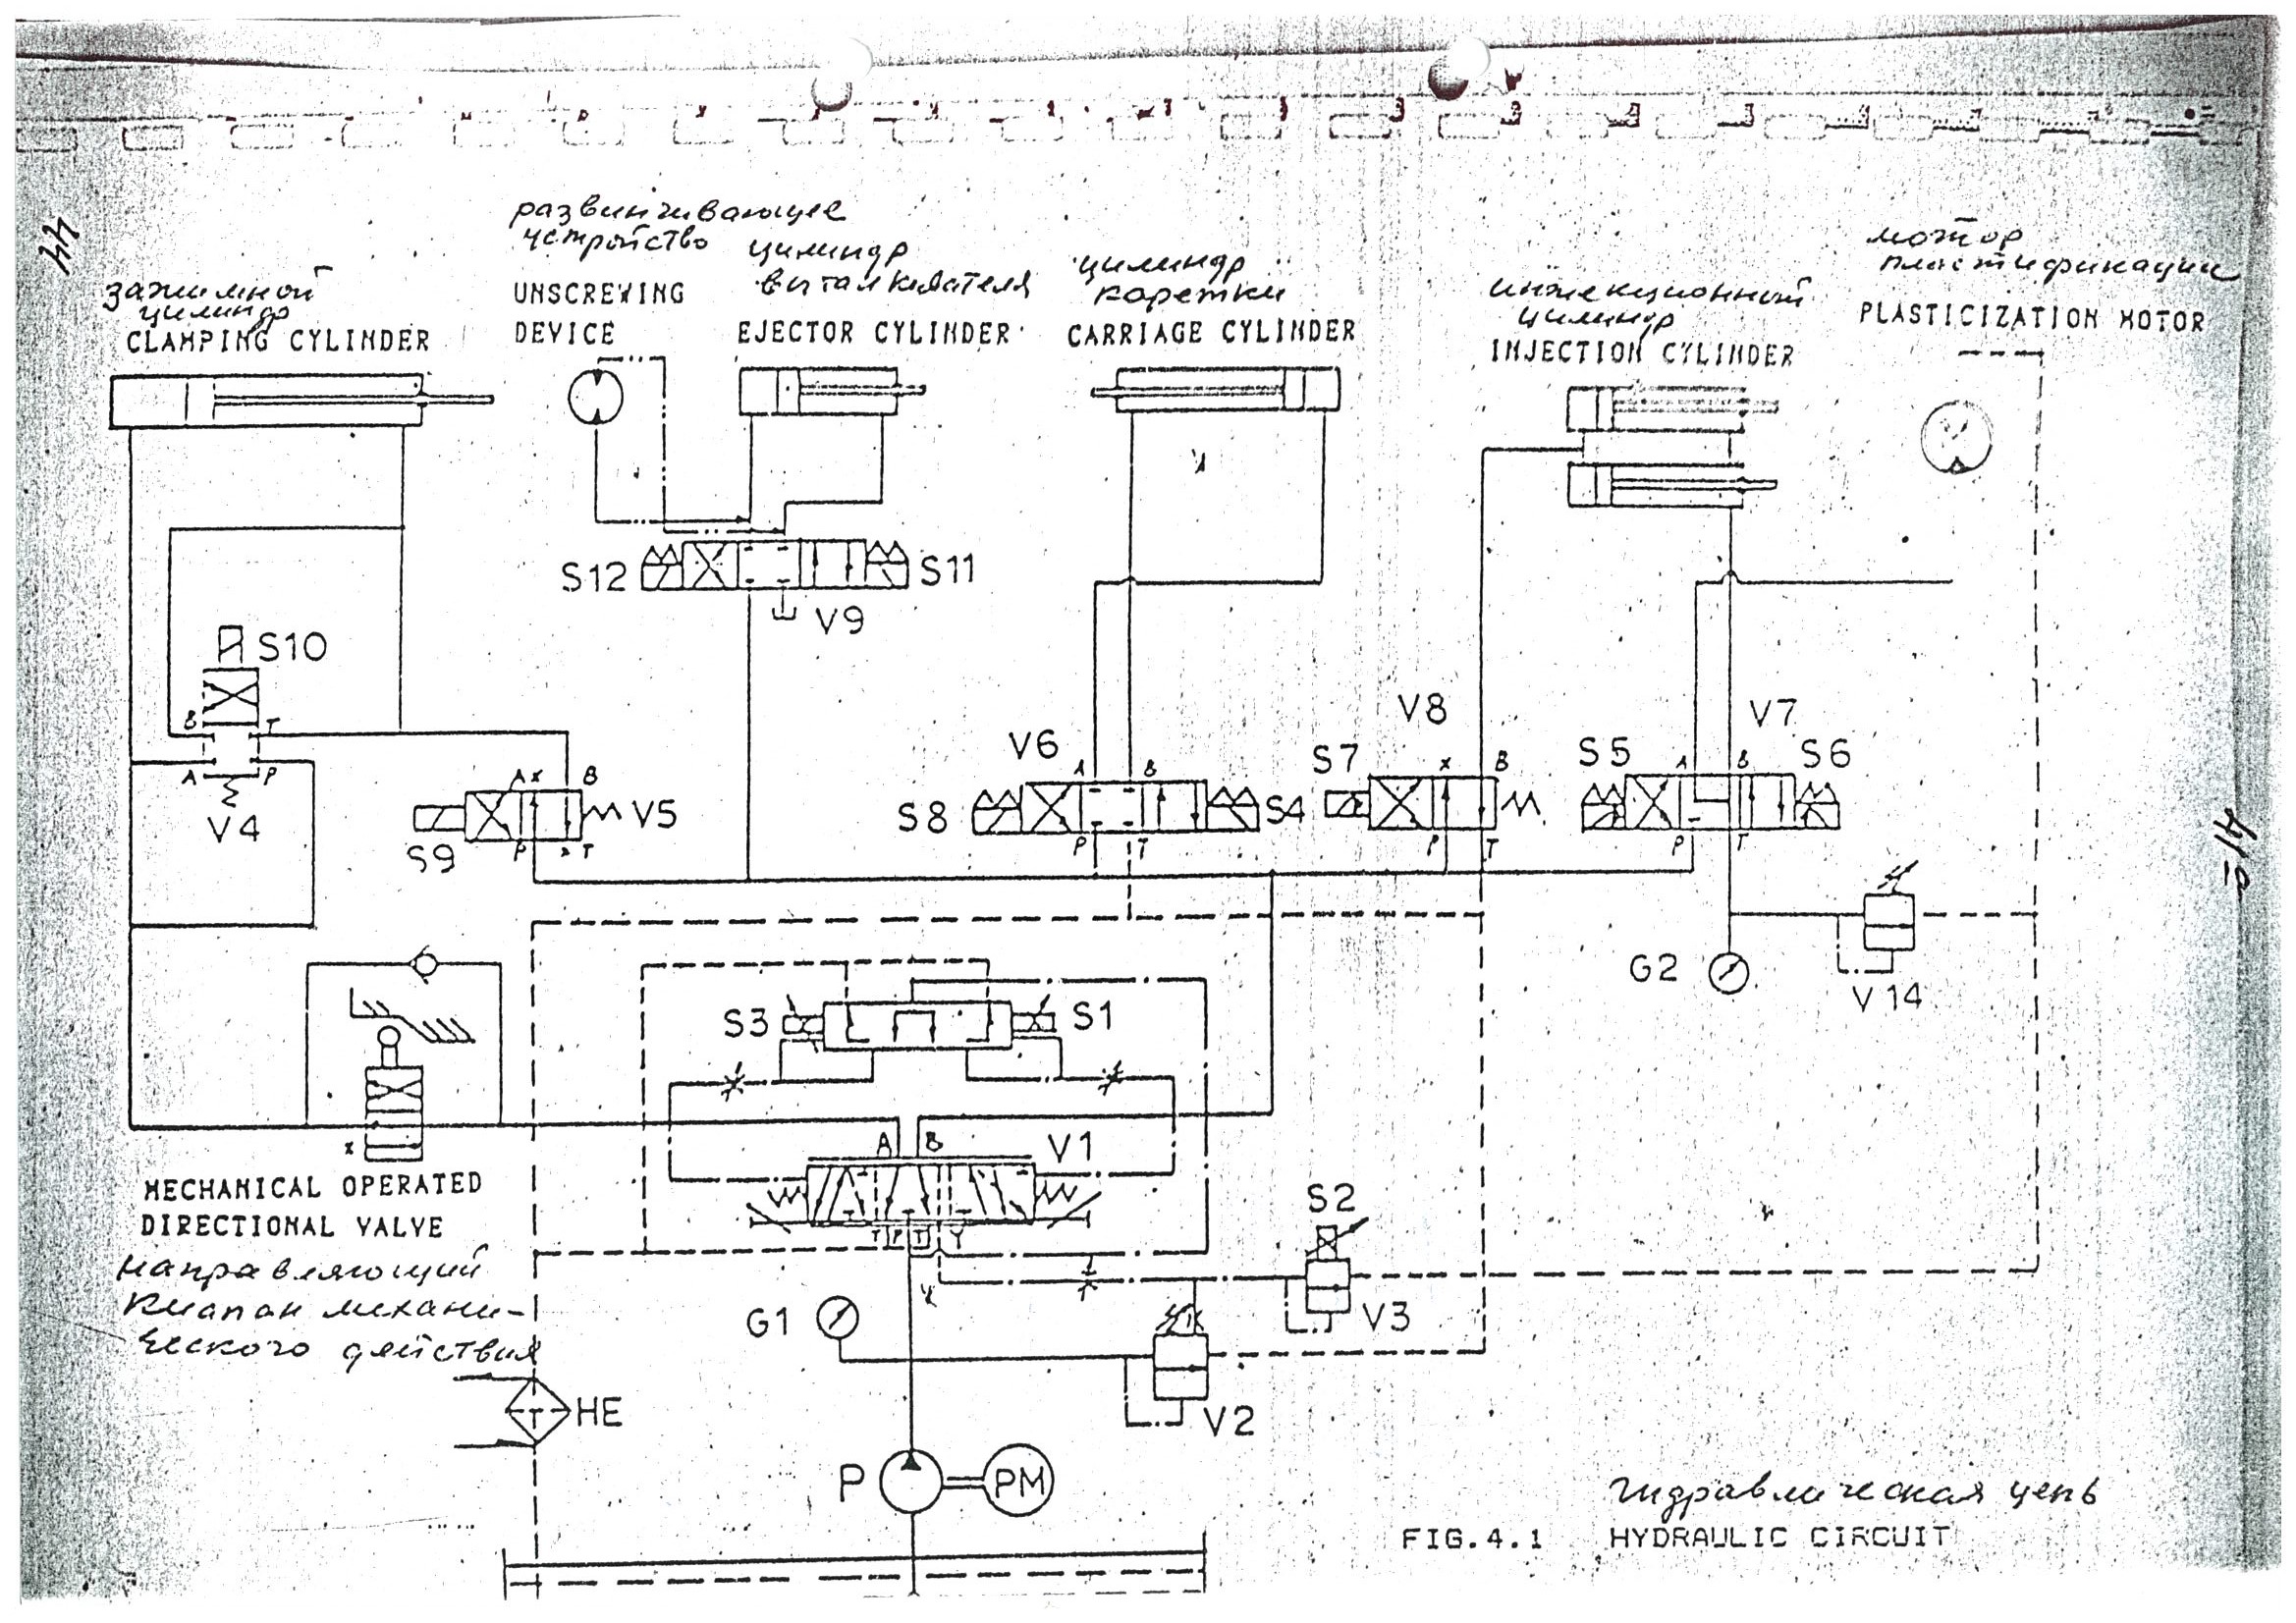 44
развинчивающее
устройство
цилиндр
выталкивателя
цилиндр
каретки
мотор
пластификации
зажимной
цилиндр
инжекционный
цилиндр
CLAMPING CYLINDER
UNSCREWING
DEVICE
EJECTOR CYLINDER
CARRIAGE CYLINDER
INJECTION CYLINDER
PLASTICIZATION MOTOR
S12
S11
V9
S10
B T
A P
V4
A x B
V5
S9
P x T
V6
A B
S8
S4
P T
V8
S7
x B
P T
V7
S5
A B
S6
P T
G2
V14
S3
S1
A B
V1
T P T Y
x
MECHANICAL OPERATED
DIRECTIONAL VALVE
направляющий
клапан механи-
ческого действия
S2
V3
G1
V2
HE
P
PM
гидравлическая цепь
FIG.4.1 HYDRAULIC CIRCUIT